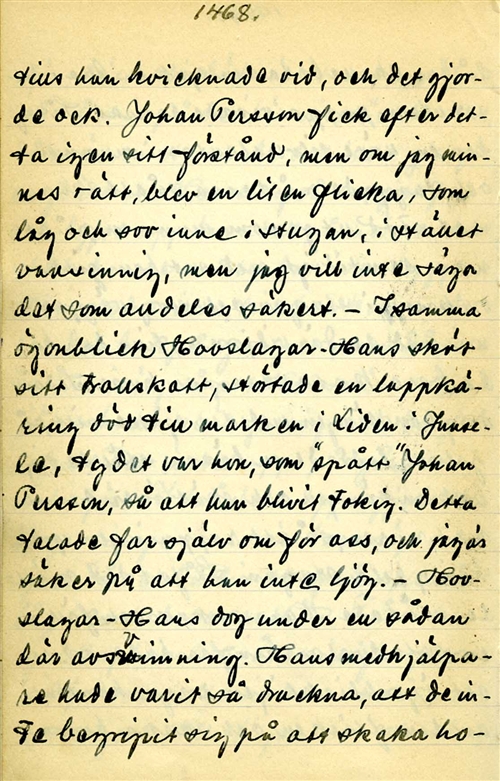 1468.
tills han kvicknade vid, och det gjor-
de ock. Johan Persson fick efter det-
ta igen sitt förstånd, men om jag min-
nes rätt, blev en liten flicka, som
låg och sov inne i stugan, i stället
vansinnig, men jag vill inte säga
det som alldeles säkert. – I samma
ögonblick Hovslagar-Hans sköt
sitt trollskott, störtade en lappkä-
ring död till marken i Liden i Junse-
le, ty det var hon, som "spått" Johan
Persson, så att han blivit tokig. Detta
talade far själv om för oss, och jag är
säker på att han inte ljög. – Hov-
slagar-Hans dog under en sådan
där avsvimning. Hans medhjälpa-
re hade varit så druckna, att de in-
te begripit sig på att skaka ho-